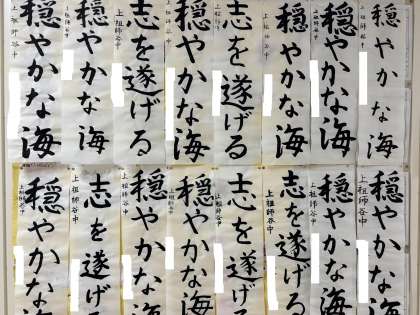 穏やかな海
上祖師谷中
穏やかな海
上祖師谷中
穏やかな海
上祖師谷中
志を遂げる
上祖師谷中
穏やかな海
上祖師谷中
志を遂げる
上祖師谷中
穏やかな海
上祖師谷中
穏やかな海
穏やかな海
上祖師谷中
穏やかな海
上祖師谷中
志を遂げる
上祖師谷中
志を遂げる
上祖師谷中
穏やかな海
上祖師谷中
穏やかな海
上祖師谷中
志を遂げる
上祖師谷中
穏やかな海
上祖師谷中